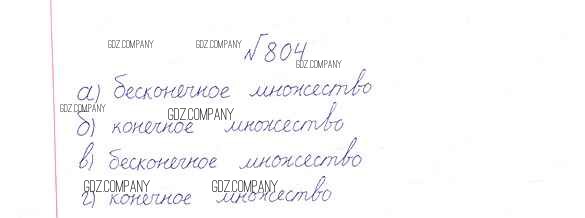 GDZ.COMPANY GDZ.COMPANY
№804
GDZ.COMPANY
а) бесконечное множество
GDZ.COMPANY GDZ.COMPANY
б) конечное множество
в) бесконечное множество
GDZ.COMPANY GDZ.COMPANY
г) конечное множество